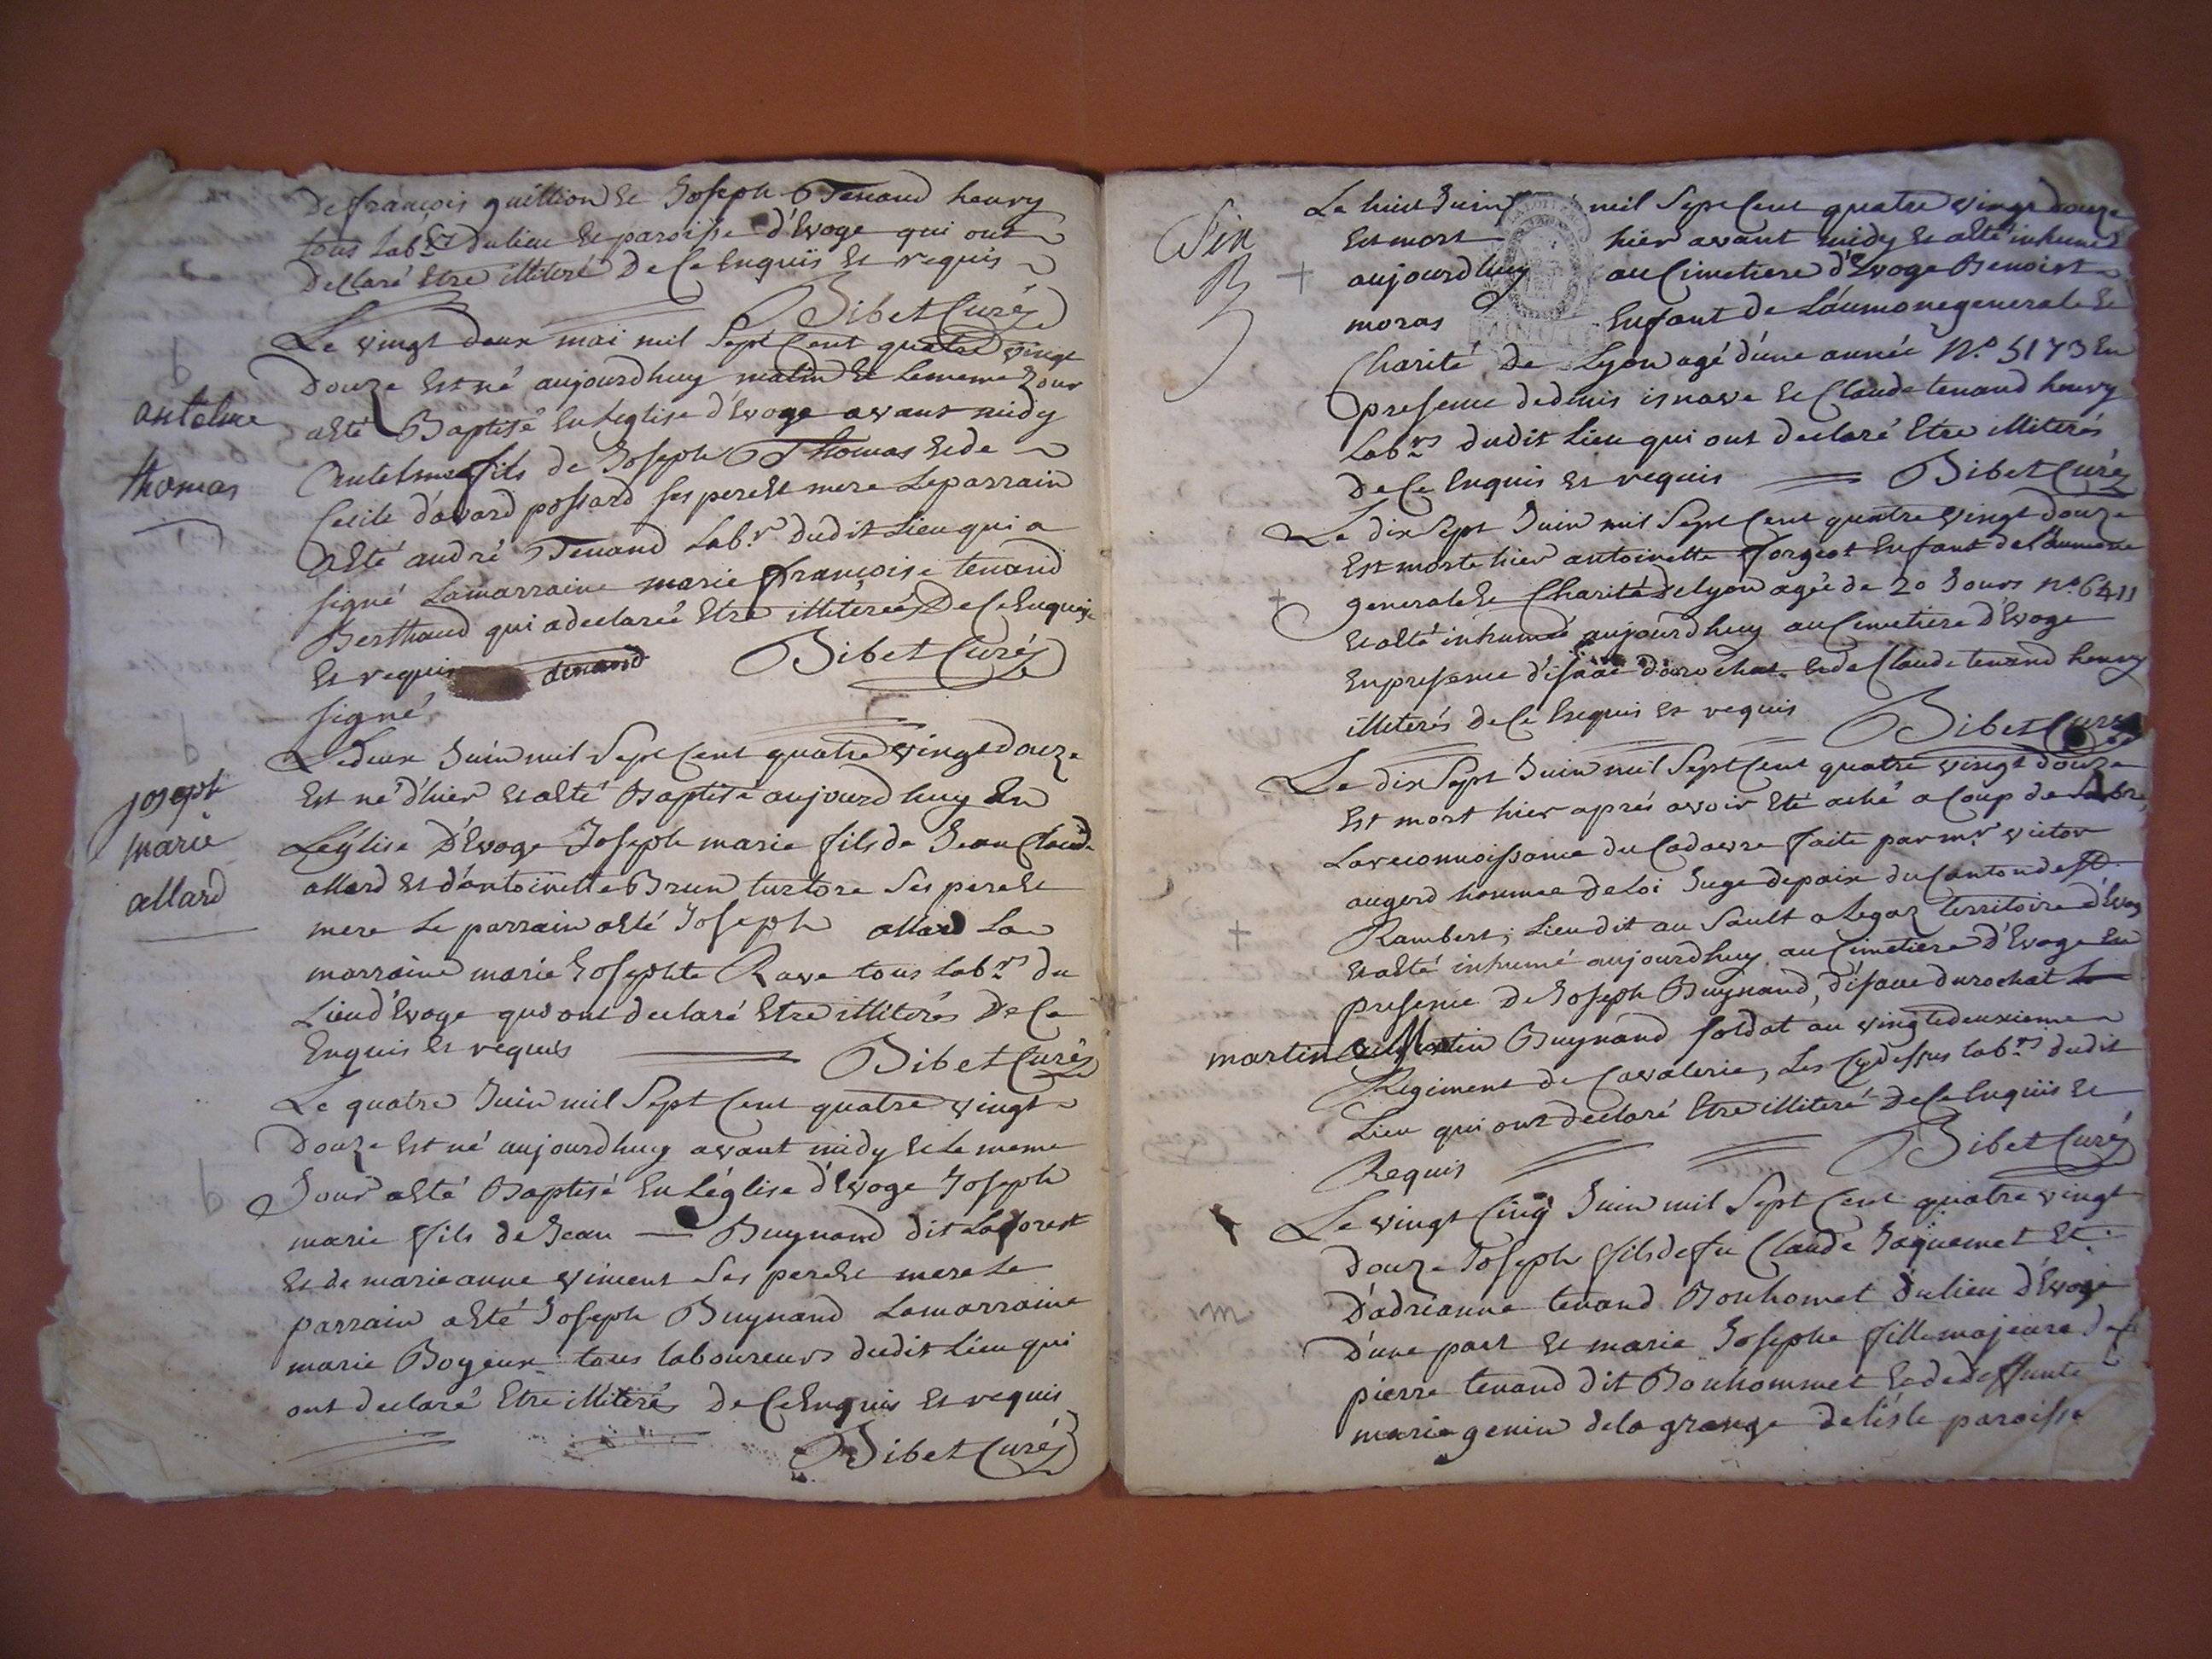 De françois guillion Et Joseph Tenand henry
tous Lab.rs du lieu Et paroisse d'Evoge qui ont
Declaré Etre illiteré De Ce Enquis Et requis
Bibet Curé
Le vingt deux mai mil Sept Cent quatre vingt
Douze Est né aujourdhuy matin Et Lememe Jour
antelme
aEté Baptisé En Leglise d'Evoge avant midy
thomas
Antelme fils de Joseph Thomas Et de
Cecile davard possard Ses pere Et mere Le parrain
aEté andré Tenand Lab.r Dudit Lieu qui a
signé Lamarraine marie françoise tenand
Berthaud qui adeclareé Etre illitereé De Ce Enquise
Et requise
tenand
Bibet Curé
signé
Ledeux Juin mil Sept Cent quatre vingt douze
Est né d'hier Et aEté Baptisé aujourdhuy En
joseph
marie
allard
Léglise D'Evoge Joseph marie fils de Jean Claude
allard Et d'antoinette Brun turtora Ses pere Et
mere Le parrain aEté Joseph allard La
marraine marie Josephte Rave tous Lab.rs du
Lieu d'Evoge qui ont declaré Etre illiterés De Ce
Enquis Et requis
Bibet Curé
Le quatre Juin mil Sept Cent quatre vingt
Douze Est né aujourdhuy avant midy Et Le meme
Jour aEté Baptisé En Léglise d'Evoge Joseph
marie fils de Jean Buynand dit Laforest
Et de marieanne vincent Ses pere Et mere Le
parrain aEté Joseph Buynand Lamarraine
marie Boyeux tous laboureurs dudit Lieu qui
ont declaré Etre illiterés De Ce Enquis Et requis
Bibet Curé
Six
Le huit Juin mil Sept Cent quatre vingt douze
Est mort hier avant midy Et aEté inhumé
aujourdhuy au Cimetiere d'Evoge Benoist
moras Enfant de L'aumone generale Et
Charité De Lyon agé d'une année N.o 5173 En
presence de denis isnave Et Claude tenand henry
Lab.rs dudit Lieu qui ont declaré Etre illiterés
De Ce Enquis Et requis Bibet Curé
Le dix Sept Juin mil Sept Cent quatre vingt douze
Est morte hier antoinette forgeot Enfant de L'aumone
generale Et Charité De Lyon agée de 20 Jours n.o 6411
Et aEté inhumeé aujourdhuy au Cimetiere d'Evoge
En presence d'isaac durochat Et de Claude tenand henry
illiterés De Ce Enquis Et requis Bibet Curé
Le dix Sept Juin mil Sept Cent quatre vingt douze
Est mort hier aprés avoir Eté aché a Coup de Sabre,
La reconnoissance du Cadavre faite par m.r victor
augerd homme de Loi Juge depaix du Canton de St.
Rambert; Lieu dit au Sault a Legaz territoire d'Evoge
Et aEté inhumé aujourdhuy au Cimetiere d'Evoge En
presence De Joseph Buynand, d'isaac durochat
martin
martin Buynand soldat au vingtedeuxieme
Regiment de Cavalerie, Les Cydessus lab.rs dudit
Lieu qui ont declaré Etre illiteré De Ce Enquis Et
Requis Bibet Curé
Le vingt Cinq Juin mil Sept Cent quatre vingt
douze Joseph fils de fu Claude Jaquemet Et
D'adrianne tenand Bonhomet du lieu d'Evoge
D'une part Et marie Josephe fille majeure de
pierre tenand dit Bonhommet Et de deffunte
marie genin de la grange de l'isle paroisse